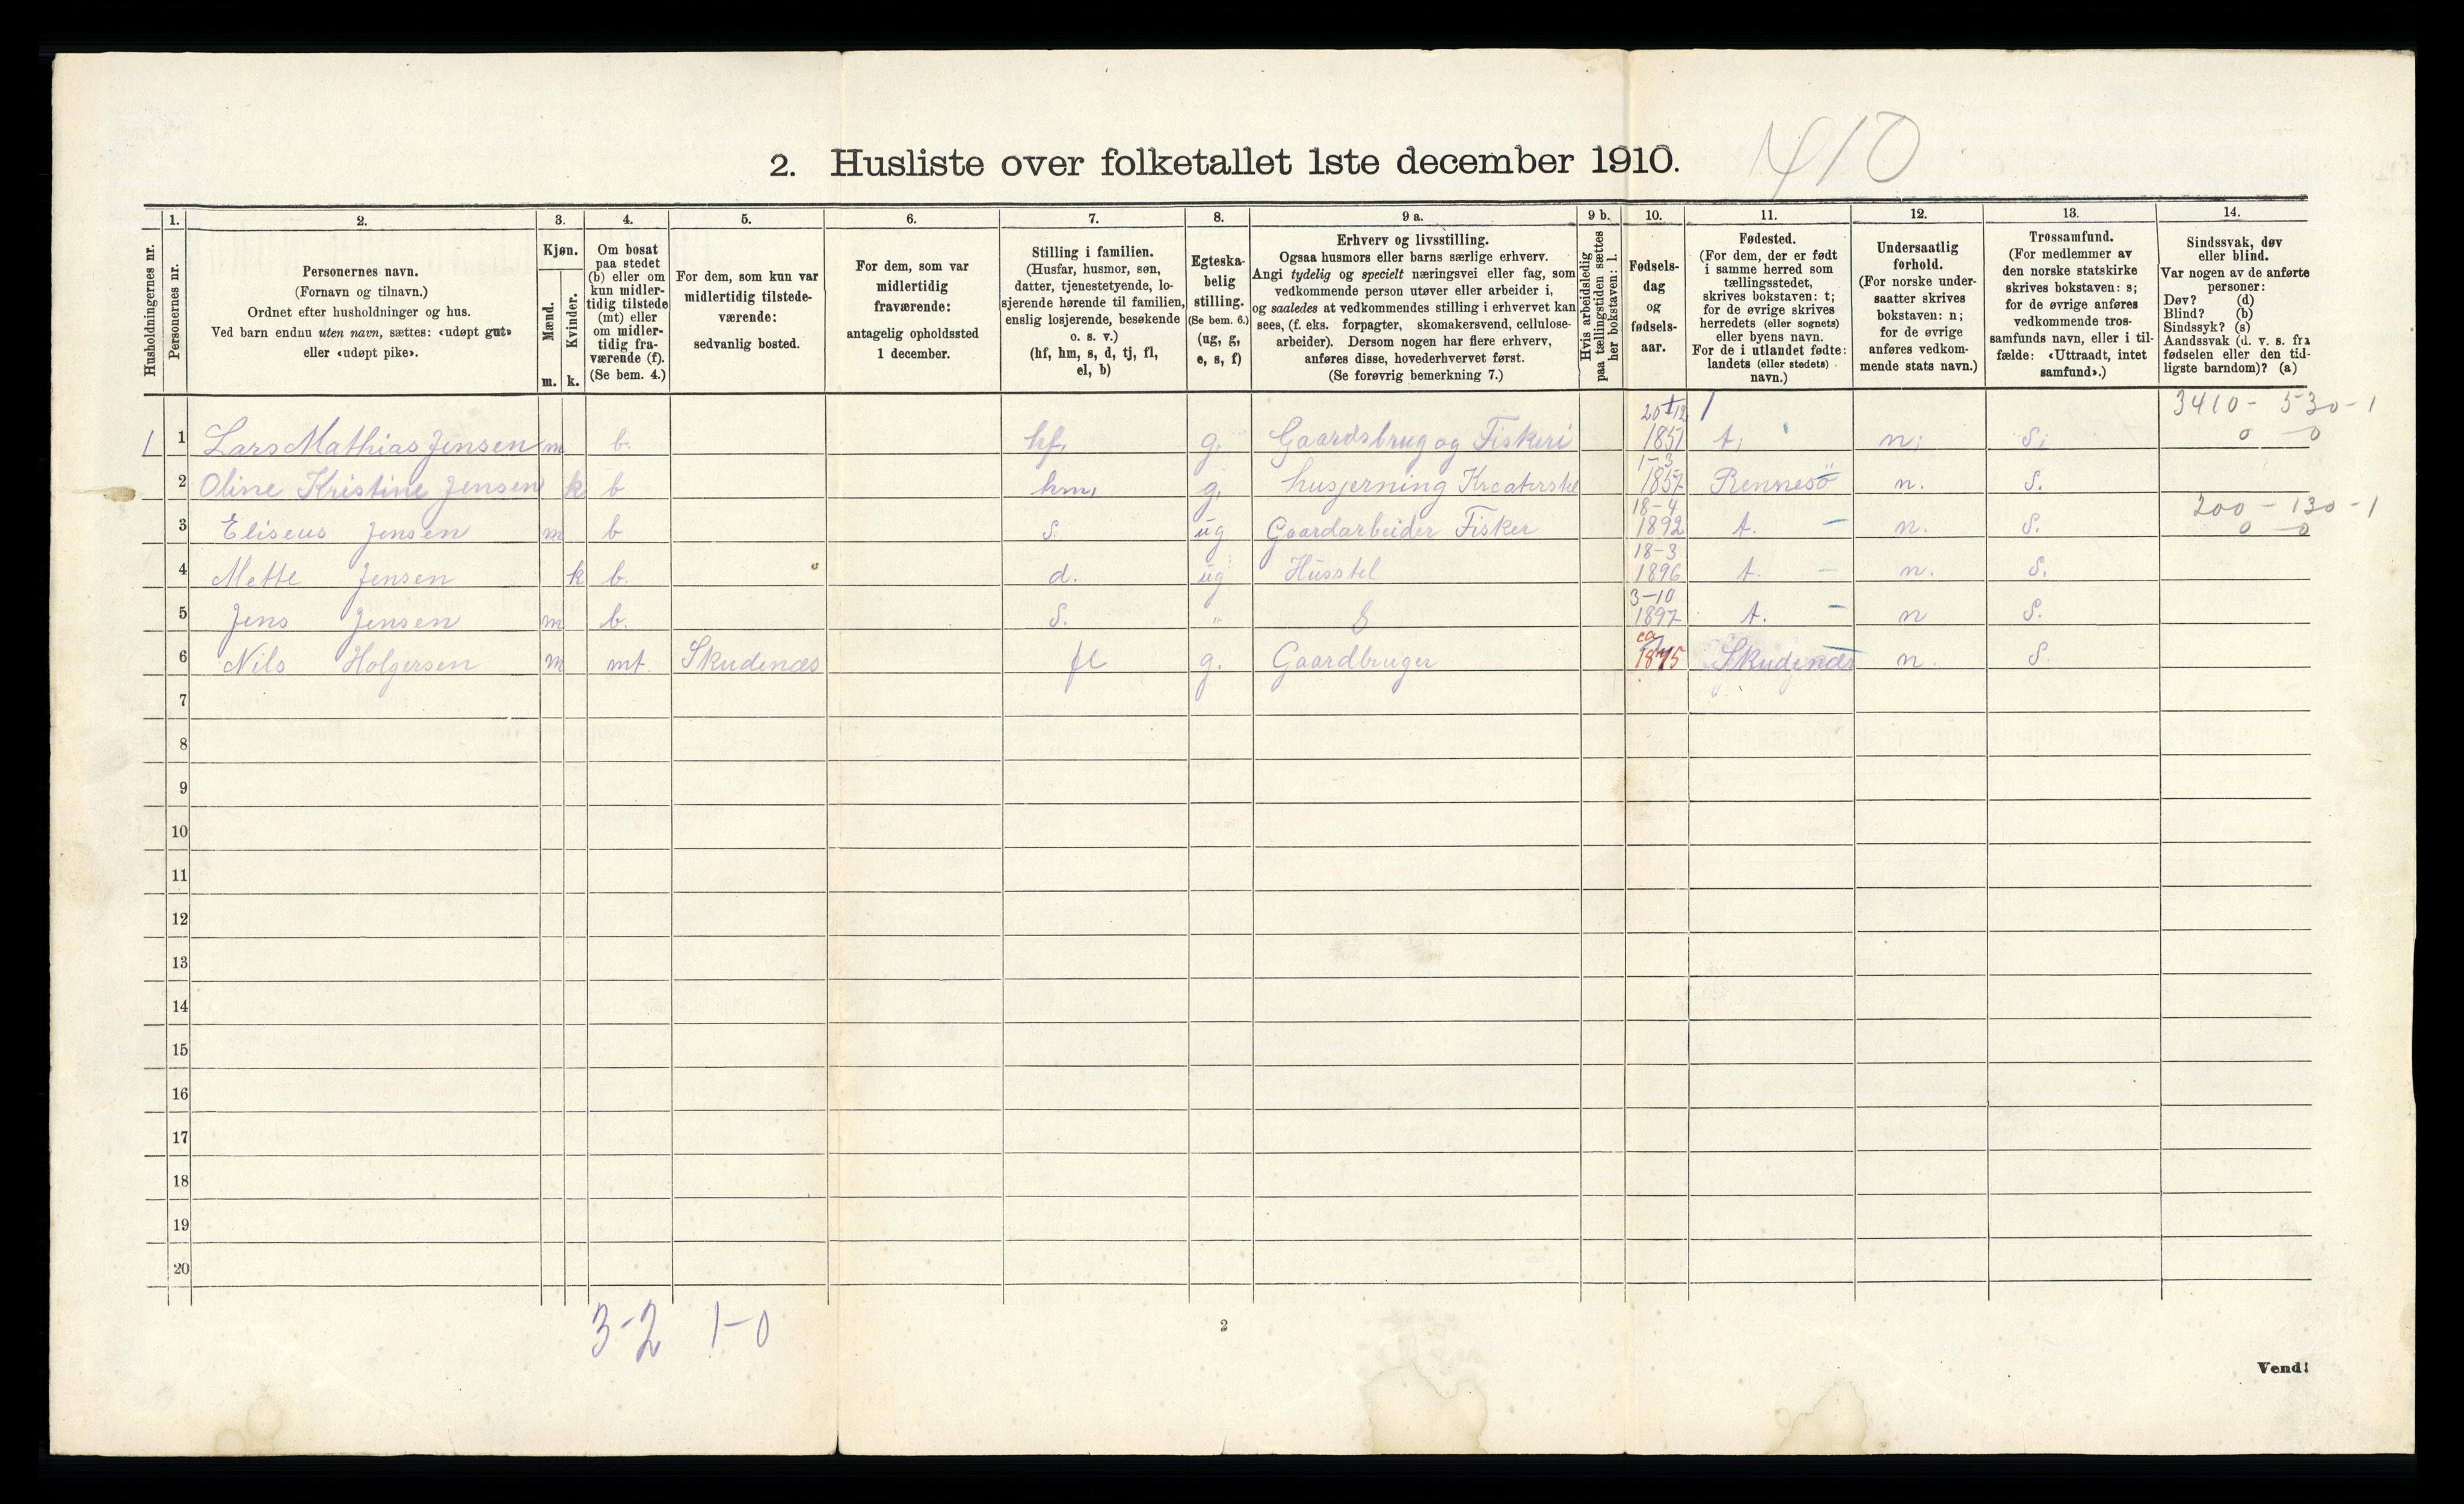 410
2. Husliste over folketallet 1ste december 1910.
Husholdningernes nr.
1.
Personernes nr.
2.
Personernes navn.
(Fornavn og tilnavn.)
Ordnet efter husholdninger og hus.
Ved barn endnu uten navn, sættes: «udøpt gut»
eller «udøpt pike».
3.
Kjøn.
Mænd.
Kvinder.
m. k.
4.
Om bosat
paa stedet
(b) eller om
kun midler-
tidig tilstede
(mt) eller
om midler-
tidig fra-
værende (f).
(Se bem. 4.)
5.
For dem, som kun var
midlertidig tilstede-
værende:
sedvanlig bosted.
6.
For dem, som var
midlertidig
fraværende:
antagelig opholdssted
1 december.
7.
Stilling i familien.
(Husfar, husmor, søn,
datter, tjenestetyende, lo-
sjerende hørende til familien,
enslig losjerende, besøkende
o. s. v.)
(hf, hm, s, d, tj, fl,
el, b)
8.
Egteska-
belig
stilling.
(Se bem. 6.)
(ug, g,
e, s, f)
9 a.
Erhverv og livsstilling.
Ogsaa husmors eller barns særlige erhverv.
Angi tydelig og specielt næringsvei eller fag, som
vedkommende person utøver eller arbeider i,
og saaledes at vedkommendes stilling i erhvervet kan
sees, (f. eks. forpagter, skomakersvend, cellulose-
arbeider). Dersom nogen har flere erhverv,
anføres disse, hovederhvervet først.
(Se forøvrig bemerkning 7.)
9 b.
Hvis arbeidsledig
paa tællingstiden sættes
her bokstaven: l.
10.
Fødsels-
dag
og
fødsels-
aar.
11.
Fødested.
(For dem, der er født
i samme herred som
tællingsstedet,
skrives bokstaven: t;
for de øvrige skrives
herredets (eller sognets)
eller byens navn.
For de i utlandet fødte:
landets (eller stedets)
navn.)
12.
Undersaatlig
forhold.
(For norske under-
saatter skrives
bokstaven: n;
for de øvrige
anføres vedkom-
mende stats navn.)
13.
Trossamfund.
(For medlemmer av
den norske statskirke
skrives bokstaven: s;
for de øvrige anføres
vedkommende tros-
samfunds navn, eller i til-
fælde: «Uttraadt, intet
samfund».)
14.
Sindssvak, døv
eller blind.
Var nogen av de anførte
personer:
Døv? (d)
Blind? (b)
Sindssyk? (s)
Aandssvak (d. v. s. fra
fødselen eller den tid-
ligste barndom)? (a)
3410 - 530 - 1
1 1 Lars Mathias Jensen m b. hf, g. Gaardsbrug og Fiskeri 20-12 1851 t, n, S, 0 0
2 Oline Kristine Jensen k b hm, g, husjerning Kreaturstel 1-3 1857 Rennesö n. S.
200 - 130 - 1
3 Eliseus Jensen m b s. ug Gaardarbeider Fisker 18-4 1892 t. n. S. 0 0
4 Mette Jensen k b. d. ug Husstel 18-3 1896 t. n. S.
5 Jens Jensen m b. s. " 3-10 1897 t. n S.
6 Nils Holgersen m mt Skudenæs fl g. Gaardbruger ca 1845 Skudenæs n. S
7
8
9
10
11
12
13
14
15
16
17
18
19
20
3-2 1-0
2
Vend!